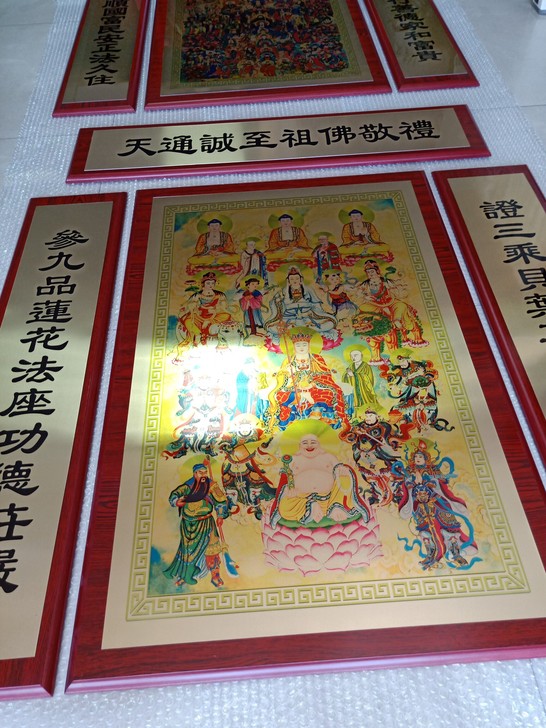 德家和富貴
順國富民安正法久住
禮敬佛祖至誠通天
證三乘貝葉
參九品蓮花法座功德莊嚴